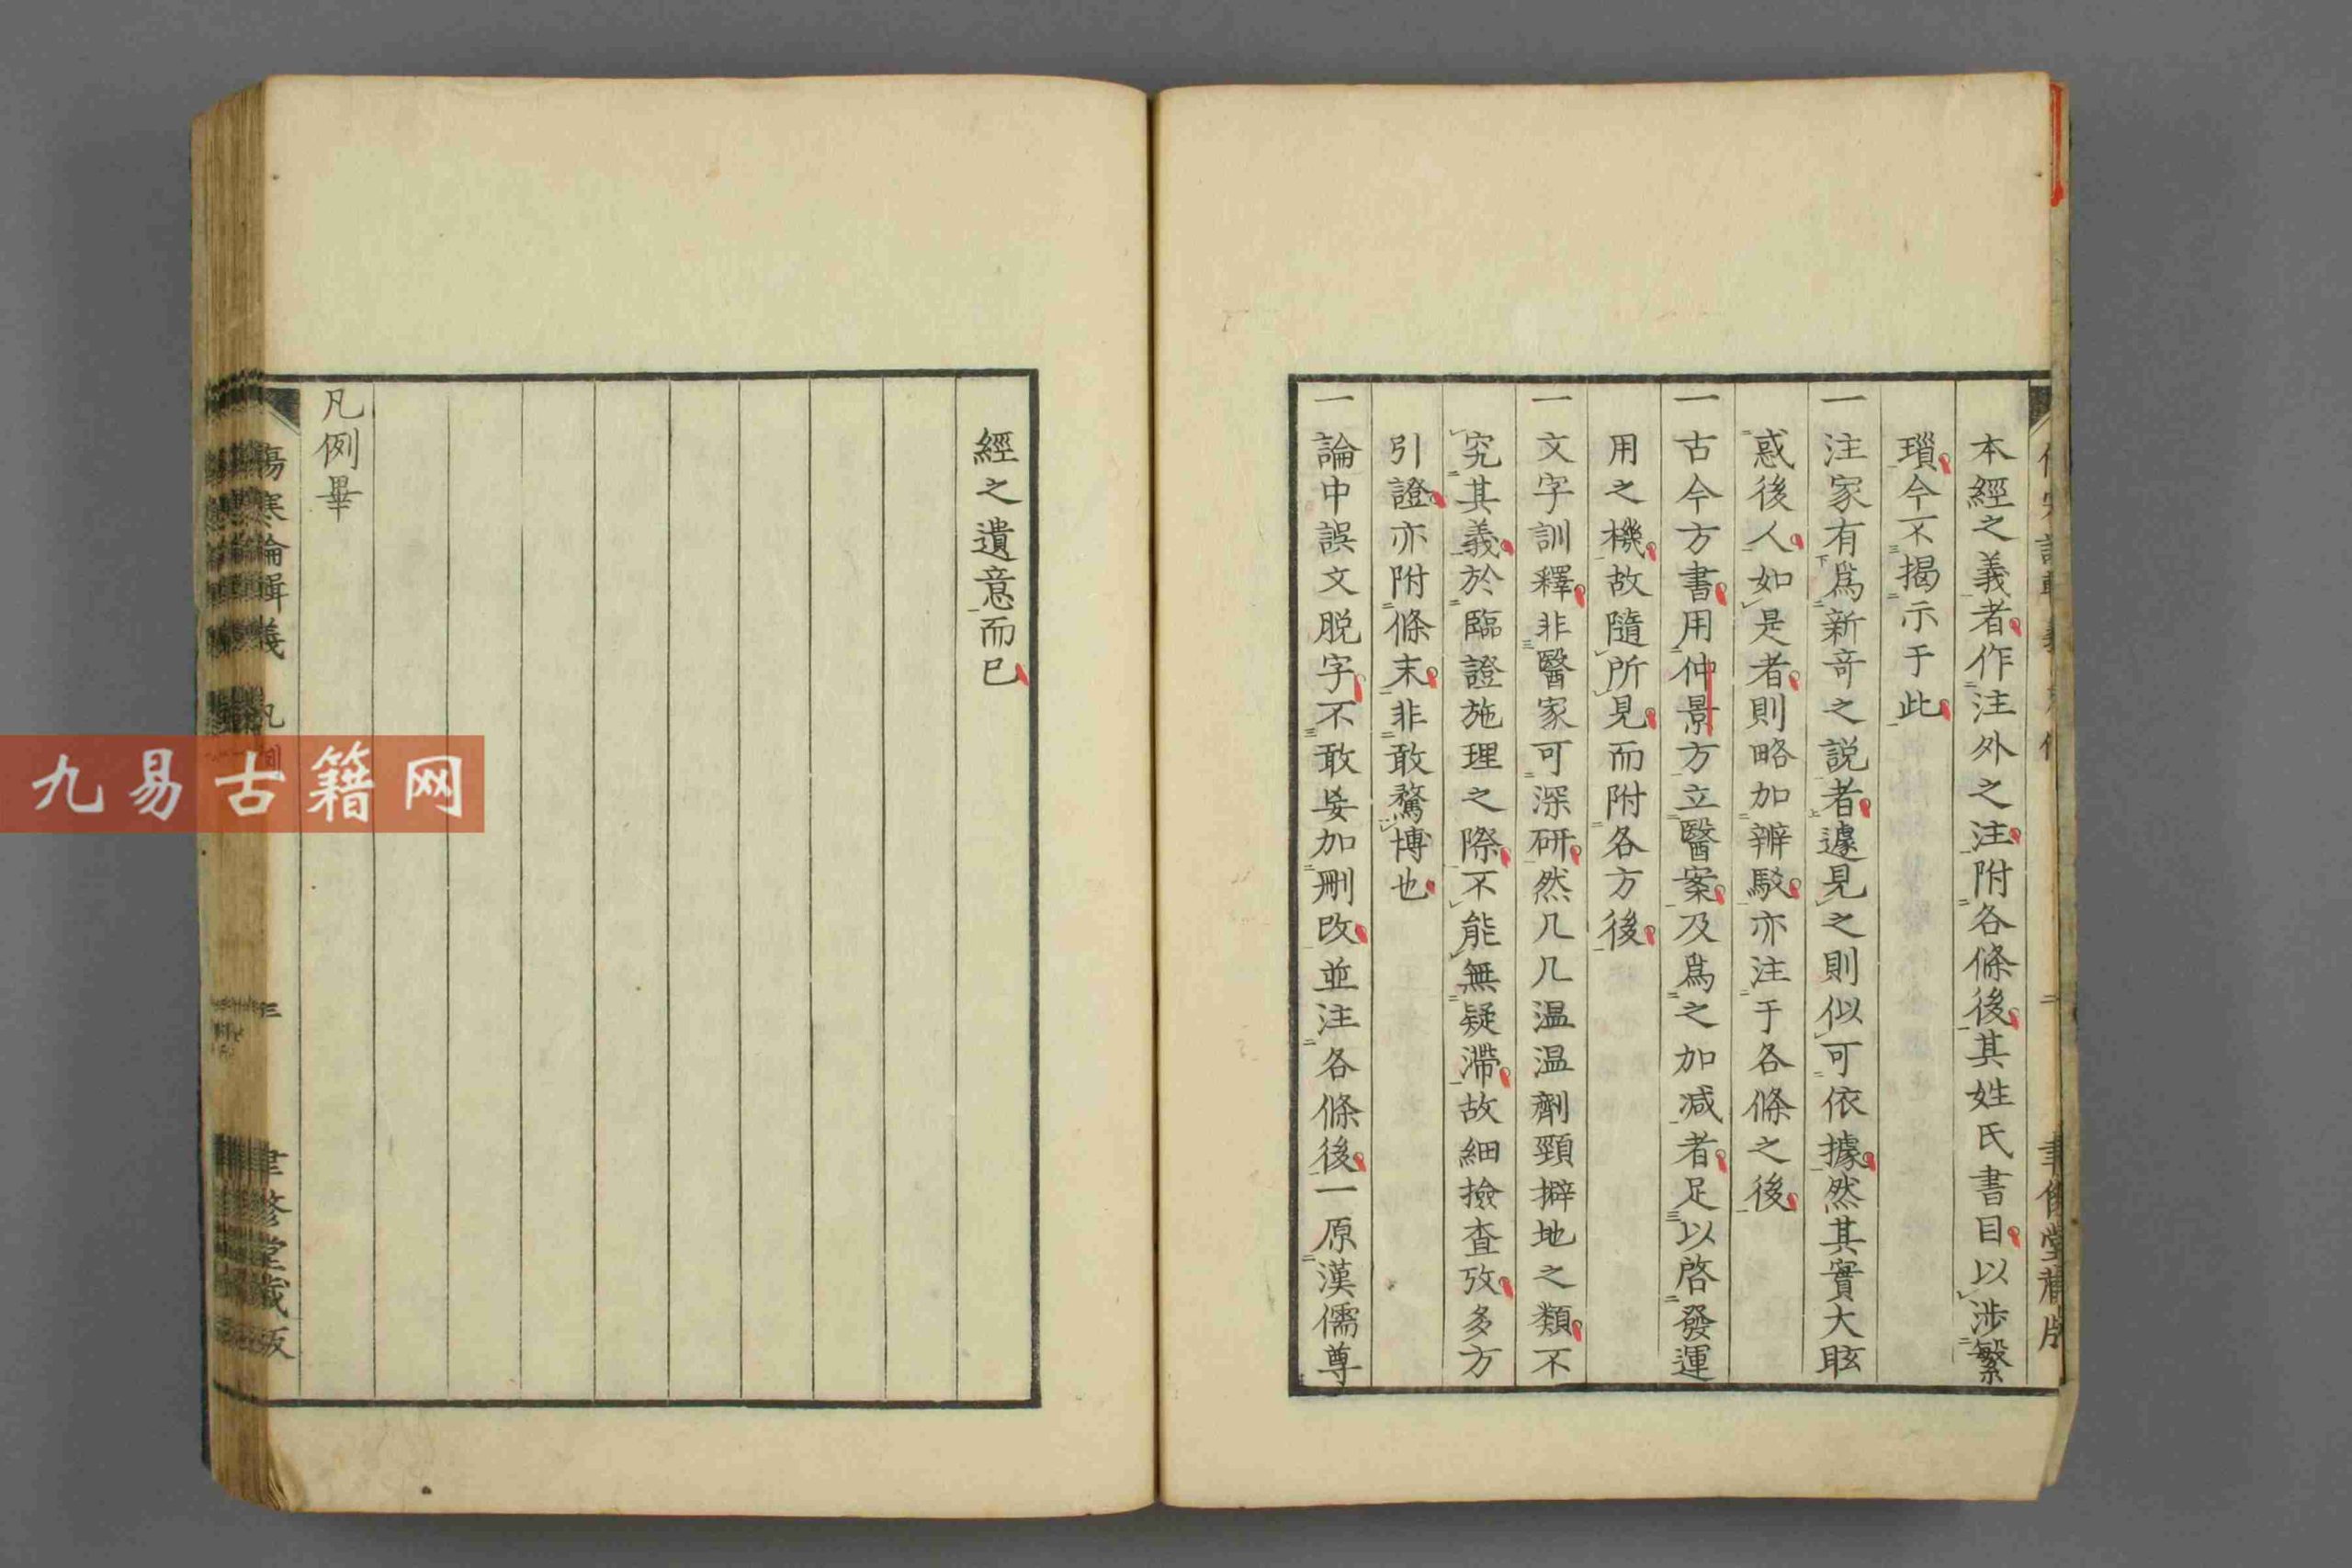 本經之義者作注外之注附各條後其姓氏書目以涉繁
瑣今不揭示于此
一注家有爲新奇之説者遽見之則似可依據然其實大眩
惑後人如是者則略加辨駁亦注于各條之後
一古今方書用仲景方立醫案及爲之加減者足以啓發運
用之機故隨所見而附各方後
一文字訓釋非醫家可深研然几几温温劑頸擗地之類不
究其義於臨證施理之際不能無疑滯故細撿查攷多方
引證亦附條末非敢騖博也
一論中誤文脱字不敢妄加刪改並注各條後一原漢儒尊
經之遺意而已
凡例畢
傷寒論輯義 凡例 三 聿修堂藏版
九易古籍网